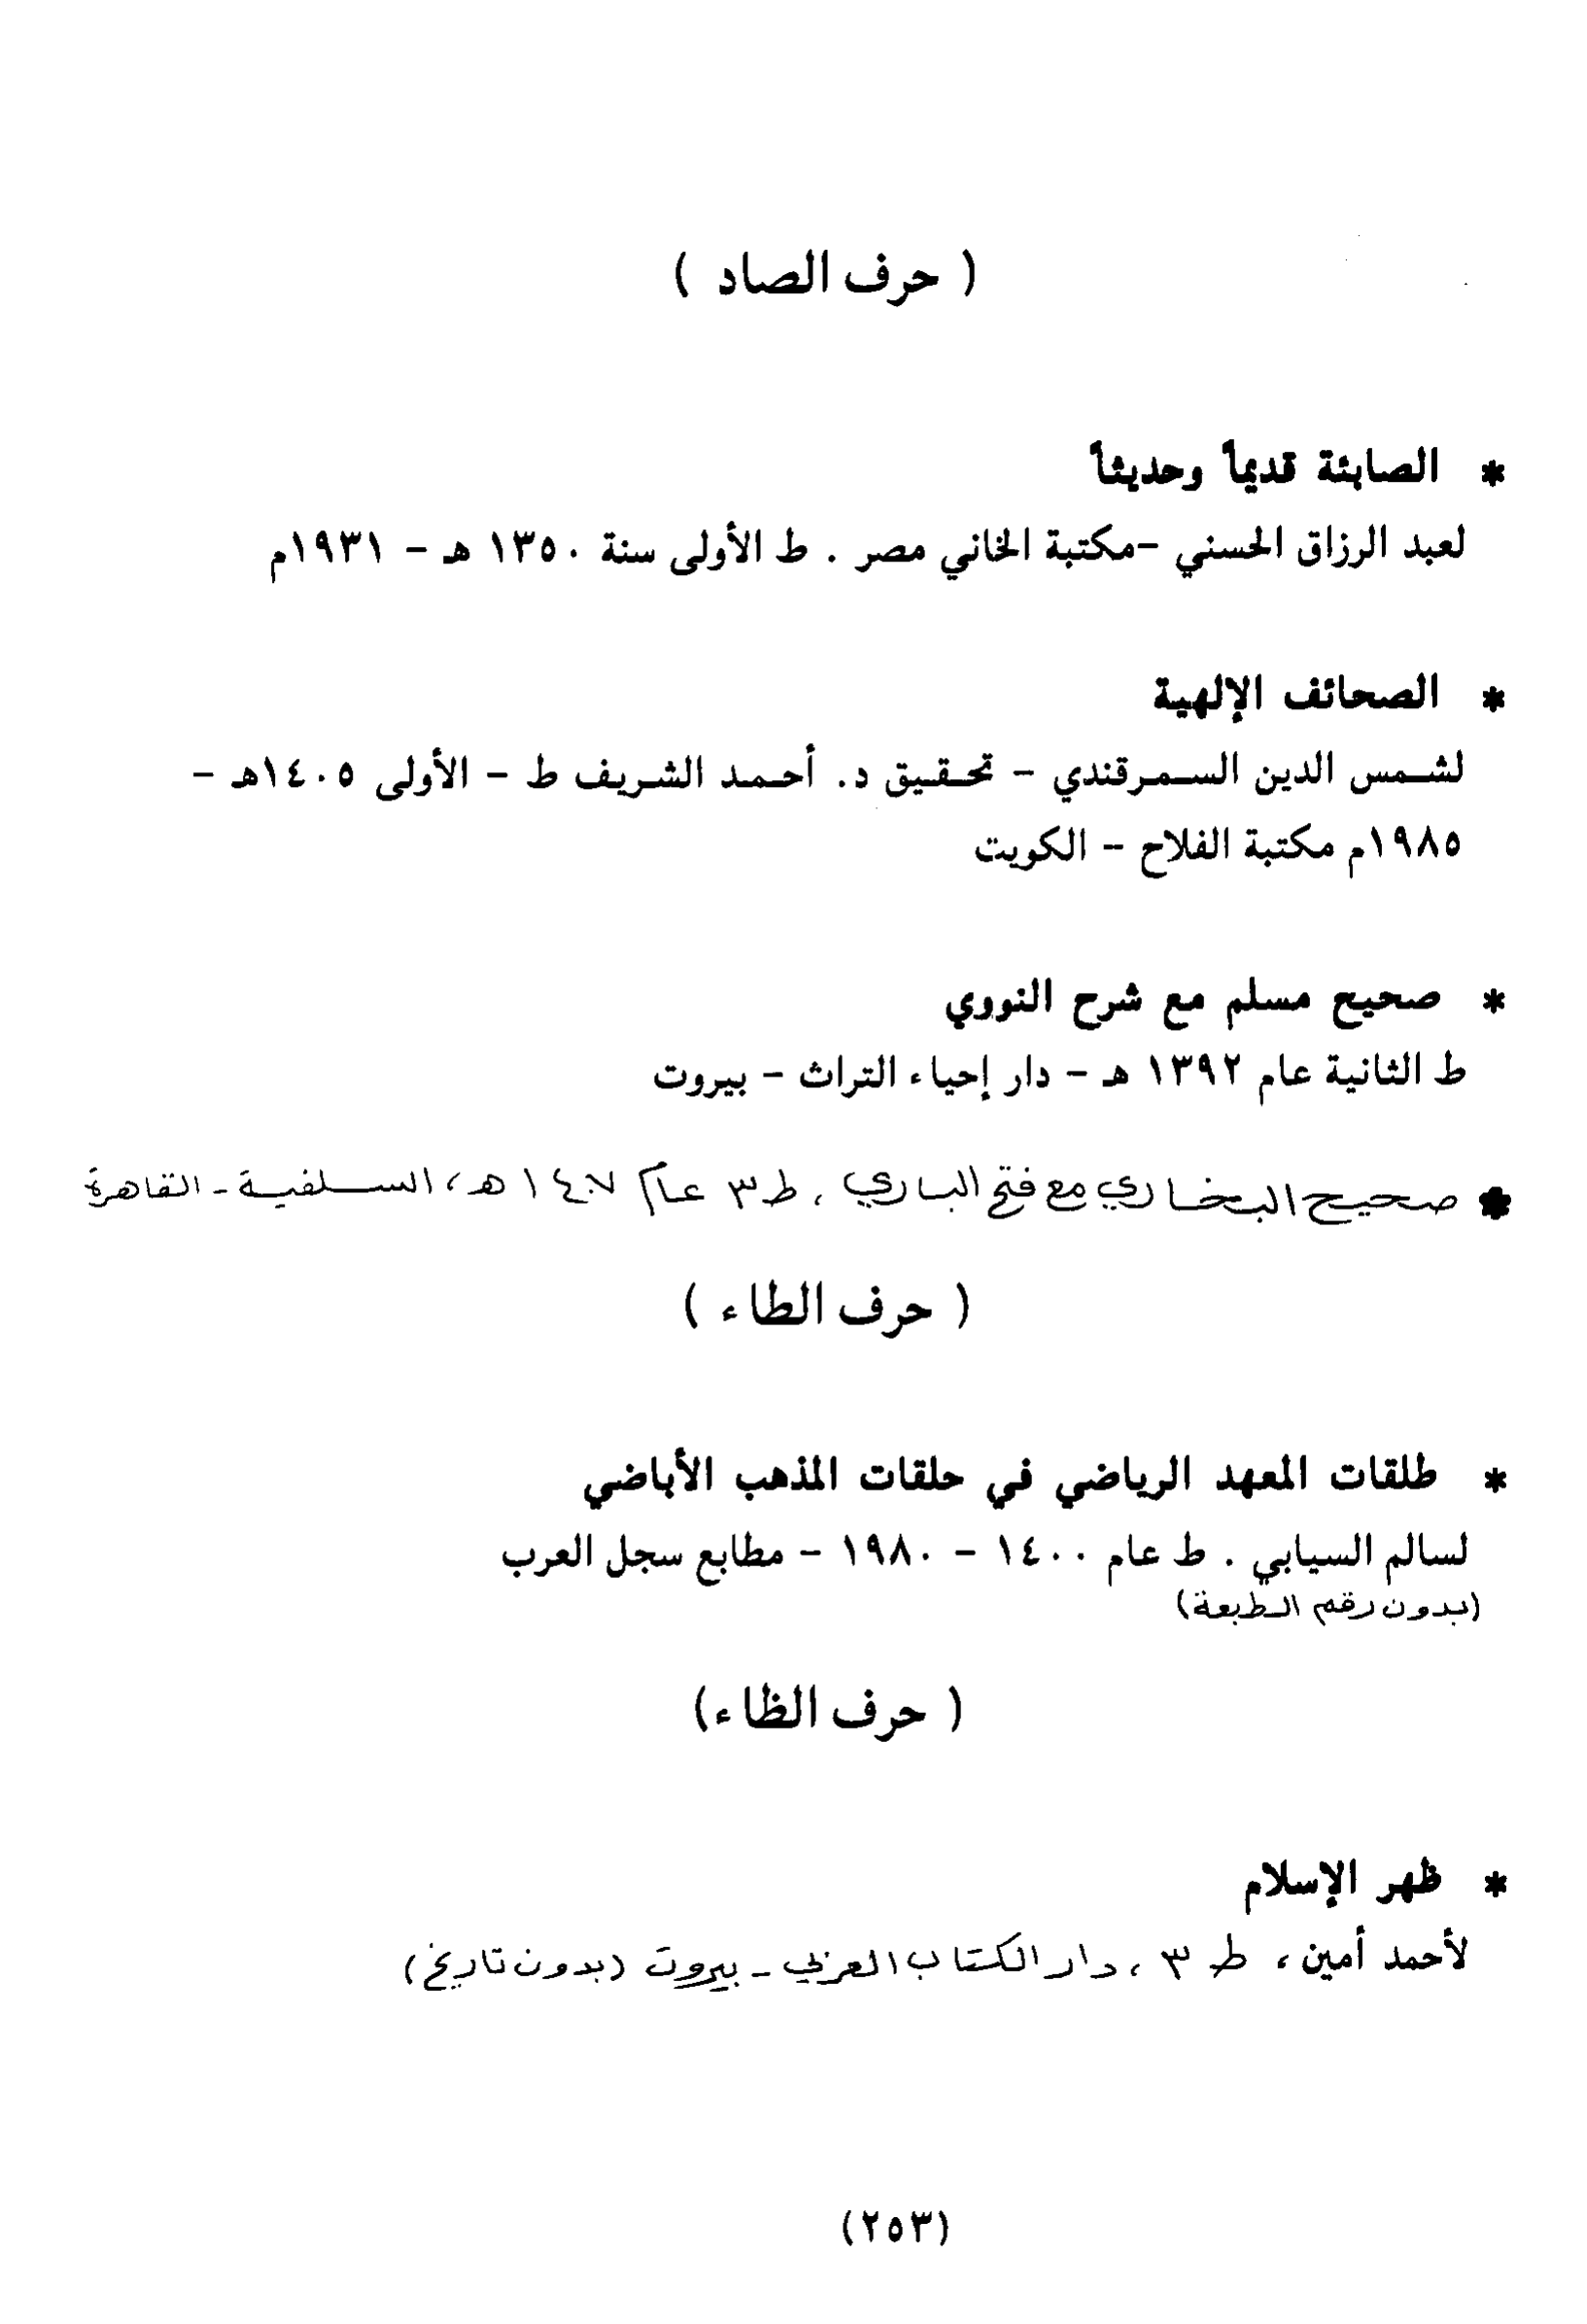 ( حرف الصاد )
* الصابئة قديماً وحديثاً
لعبد الرزاق الحسني -مكتبة الخاني مصر . ط الأولى سنة ١٣٥٠ هـ - ١٩٣١م
* الصحائف الإلهية
لشمس الدين السمرقندي - تحقيق د. أحمد الشريف ط - الأولى ١٤٠٥هـ -
١٩٨٥م مكتبة الفلاح - الكويت
* صحيح مسلم مع شرح النووي
ط الثانية عام ١٣٩٢ هـ - دار إحياء التراث - بيروت
* صحيح البخاري مع فتح الباري ، ط ٣ عام ١٤٠٧ هـ ، السلفية - القاهرة
( حرف الطاء )
* طلقات المعهد الرياضي في حلقات المذهب الأباضي
لسالم السيابي . ط عام ١٤٠٠ - ١٩٨٠ - مطابع سجل العرب
(بدون رقم الطبعة)
( حرف الظاء)
* ظهر الإسلام
لأحمد أمين ، ط ٣ ، دار الكتاب العربي - بيروت (بدون تاريخ)
(٢٥٣)